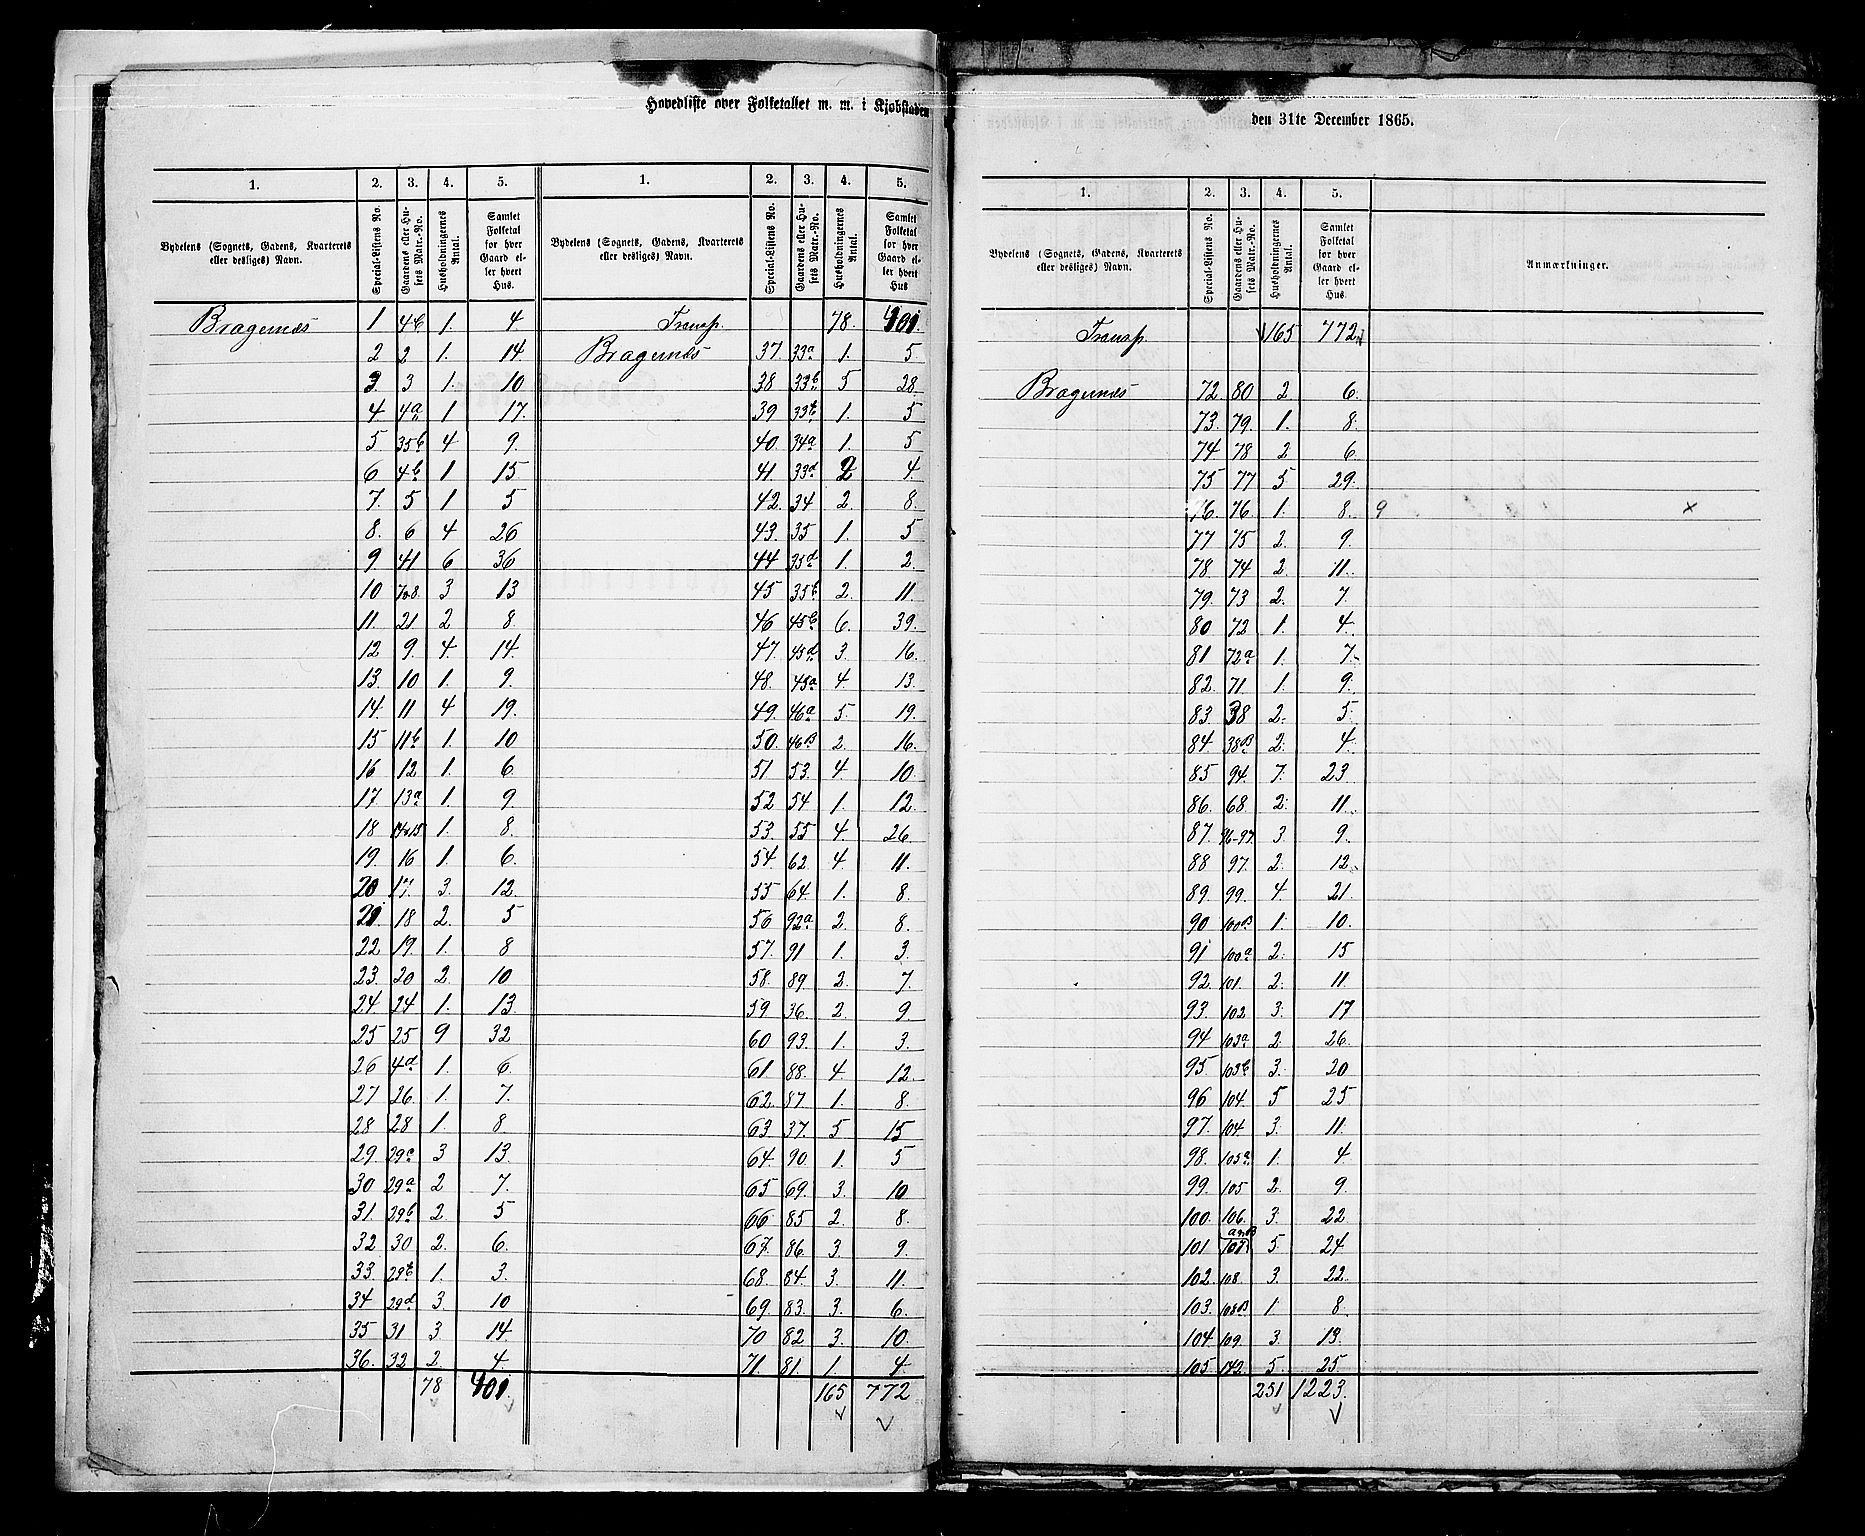 Hovedliste over Folketallet m. m. i Kjøbstaden
1. 2. 3. 4. 5. 1. 2. 3. 4. 5.
Bydelens (Sognets, Gadens, Kvarterets eller desliges) Navn. Special-Listens No. Gaardens eller Husets Matr.-No. Husholdningernes Antal. Samlet Folketal for hver Gaard eller hvert Hus. Bydelens (Sognets, Gadens, Kvarterets eller desliges) Navn. Special-Listens No. Gaardens eller Husets Matr.-No. Husholdningernes Antal. Samlet Folketal for hver Gaard eller hvert Hus
Bragernæs 1 4b 1. 4 Transp. 78. 401.
2 2 1. 14 Bragernæs 37. 33a 1. 5
3 3 1. 10 38 33b 5 28
4 4a 1 17. 39 1. 5
5 35b 4 9. 40. 34a 1. 5
6 4b 1 15 41. 33d 2 4.
7. 5 1 5 42. 34 2. 8.
8. 6 4 26 43. 35 1. 5
9 41 6 36 44 35d 1. 2.
10 7o8. 3 13 45 35b 2. 11.
11. 21. 2 8. 46 45b 6. 39.
12 9. 4. 14. 47. 45d 3. 16.
13. 10 1. 9. 48. 45a 4. 13.
14. 11 4 19. 49. 46a 5. 19.
15 11b 1. 10 50. 46B 2. 16.
16 12 1. 6. 51 53. 4. 10.
17. 13a 1. 9 52 54 1. 12.
18 14o15 1. 8. 53. 55 4. 26
19. 16 1. 6. 54. 62 4. 11.
20 17. 3. 12. 55 64. 1. 8.
21. 18 2. 5 56 92a 2 8.
22 19. 1. 8 57. 91 1. 3.
23. 20 2. 10 58. 89 2. 7.
24 24 1. 13. 59 36. 2 9.
25 25 9 32 60 93. 1. 3.
26 4d 1. 6. 61. 88. 4 12.
27 26. 1. 7. 62. 87. 1. 8.
28 28 1 8. 63 37. 5 15
29. 29a 3 13. 64. 90. 1. 5
30 29a 2 7. 65 69. 3. 10
31. 29b 2. 5 66 85 2. 8.
32 30 2. 6. 67. 86. 3. 9.
33. 1. 3. 68. 84. 3. 11.
34 29d 3. 10 69. 83. 3. 6.
35 31 3 14. 70 82 3. 10.
36. 32 2. 4. 71. 81. 1. 4
78 401. 165 772
den 31te December 1865.
1. 2. 3. 4. 5.
Bydelens (Sognets, Gadens, Kvarterets eller desliges) Navn. Special-Listens No. Gaardens eller Husets Matr.-No. Husholdningernes Antal. Samlet Folketal for hver Gaard eller hvert Hus Anmærkninger.
Transp. 165 772
Bragernæs 72. 80 2 6.
73. 79. 1. 8.
74 78 2 6.
75 77 5 29.
76. 76. 1. 8. 9 x
77 75 2. 9.
78. 74 2. 11.
79. 73 2. 7.
80 72 1. 4.
81 72a 1. 7.
82. 71 1. 9.
83. 38 2. 5
84. 38B 2. 4.
85 94. 7. 23.
86. 68 2. 11.
87. 96-97 3 9.
88 97. 2. 12.
89. 99. 4. 21.
90 100B 1. 10.
91 100a 2. 15
92. 101. 2. 11.
93. 102 3. 17
94 103a 2. 26.
95. 103b 3. 20
96 104. 5 25
97. 104. 3. 11.
98. 105a 1. 4
99. 105 2. 9.
100. 106. 3. 22
101 107. 5. 24
102. 108. 3. 22.
103. 108B 1. 8.
104. 109. 3 13.
105. 142. 5. 25.
251 1223.